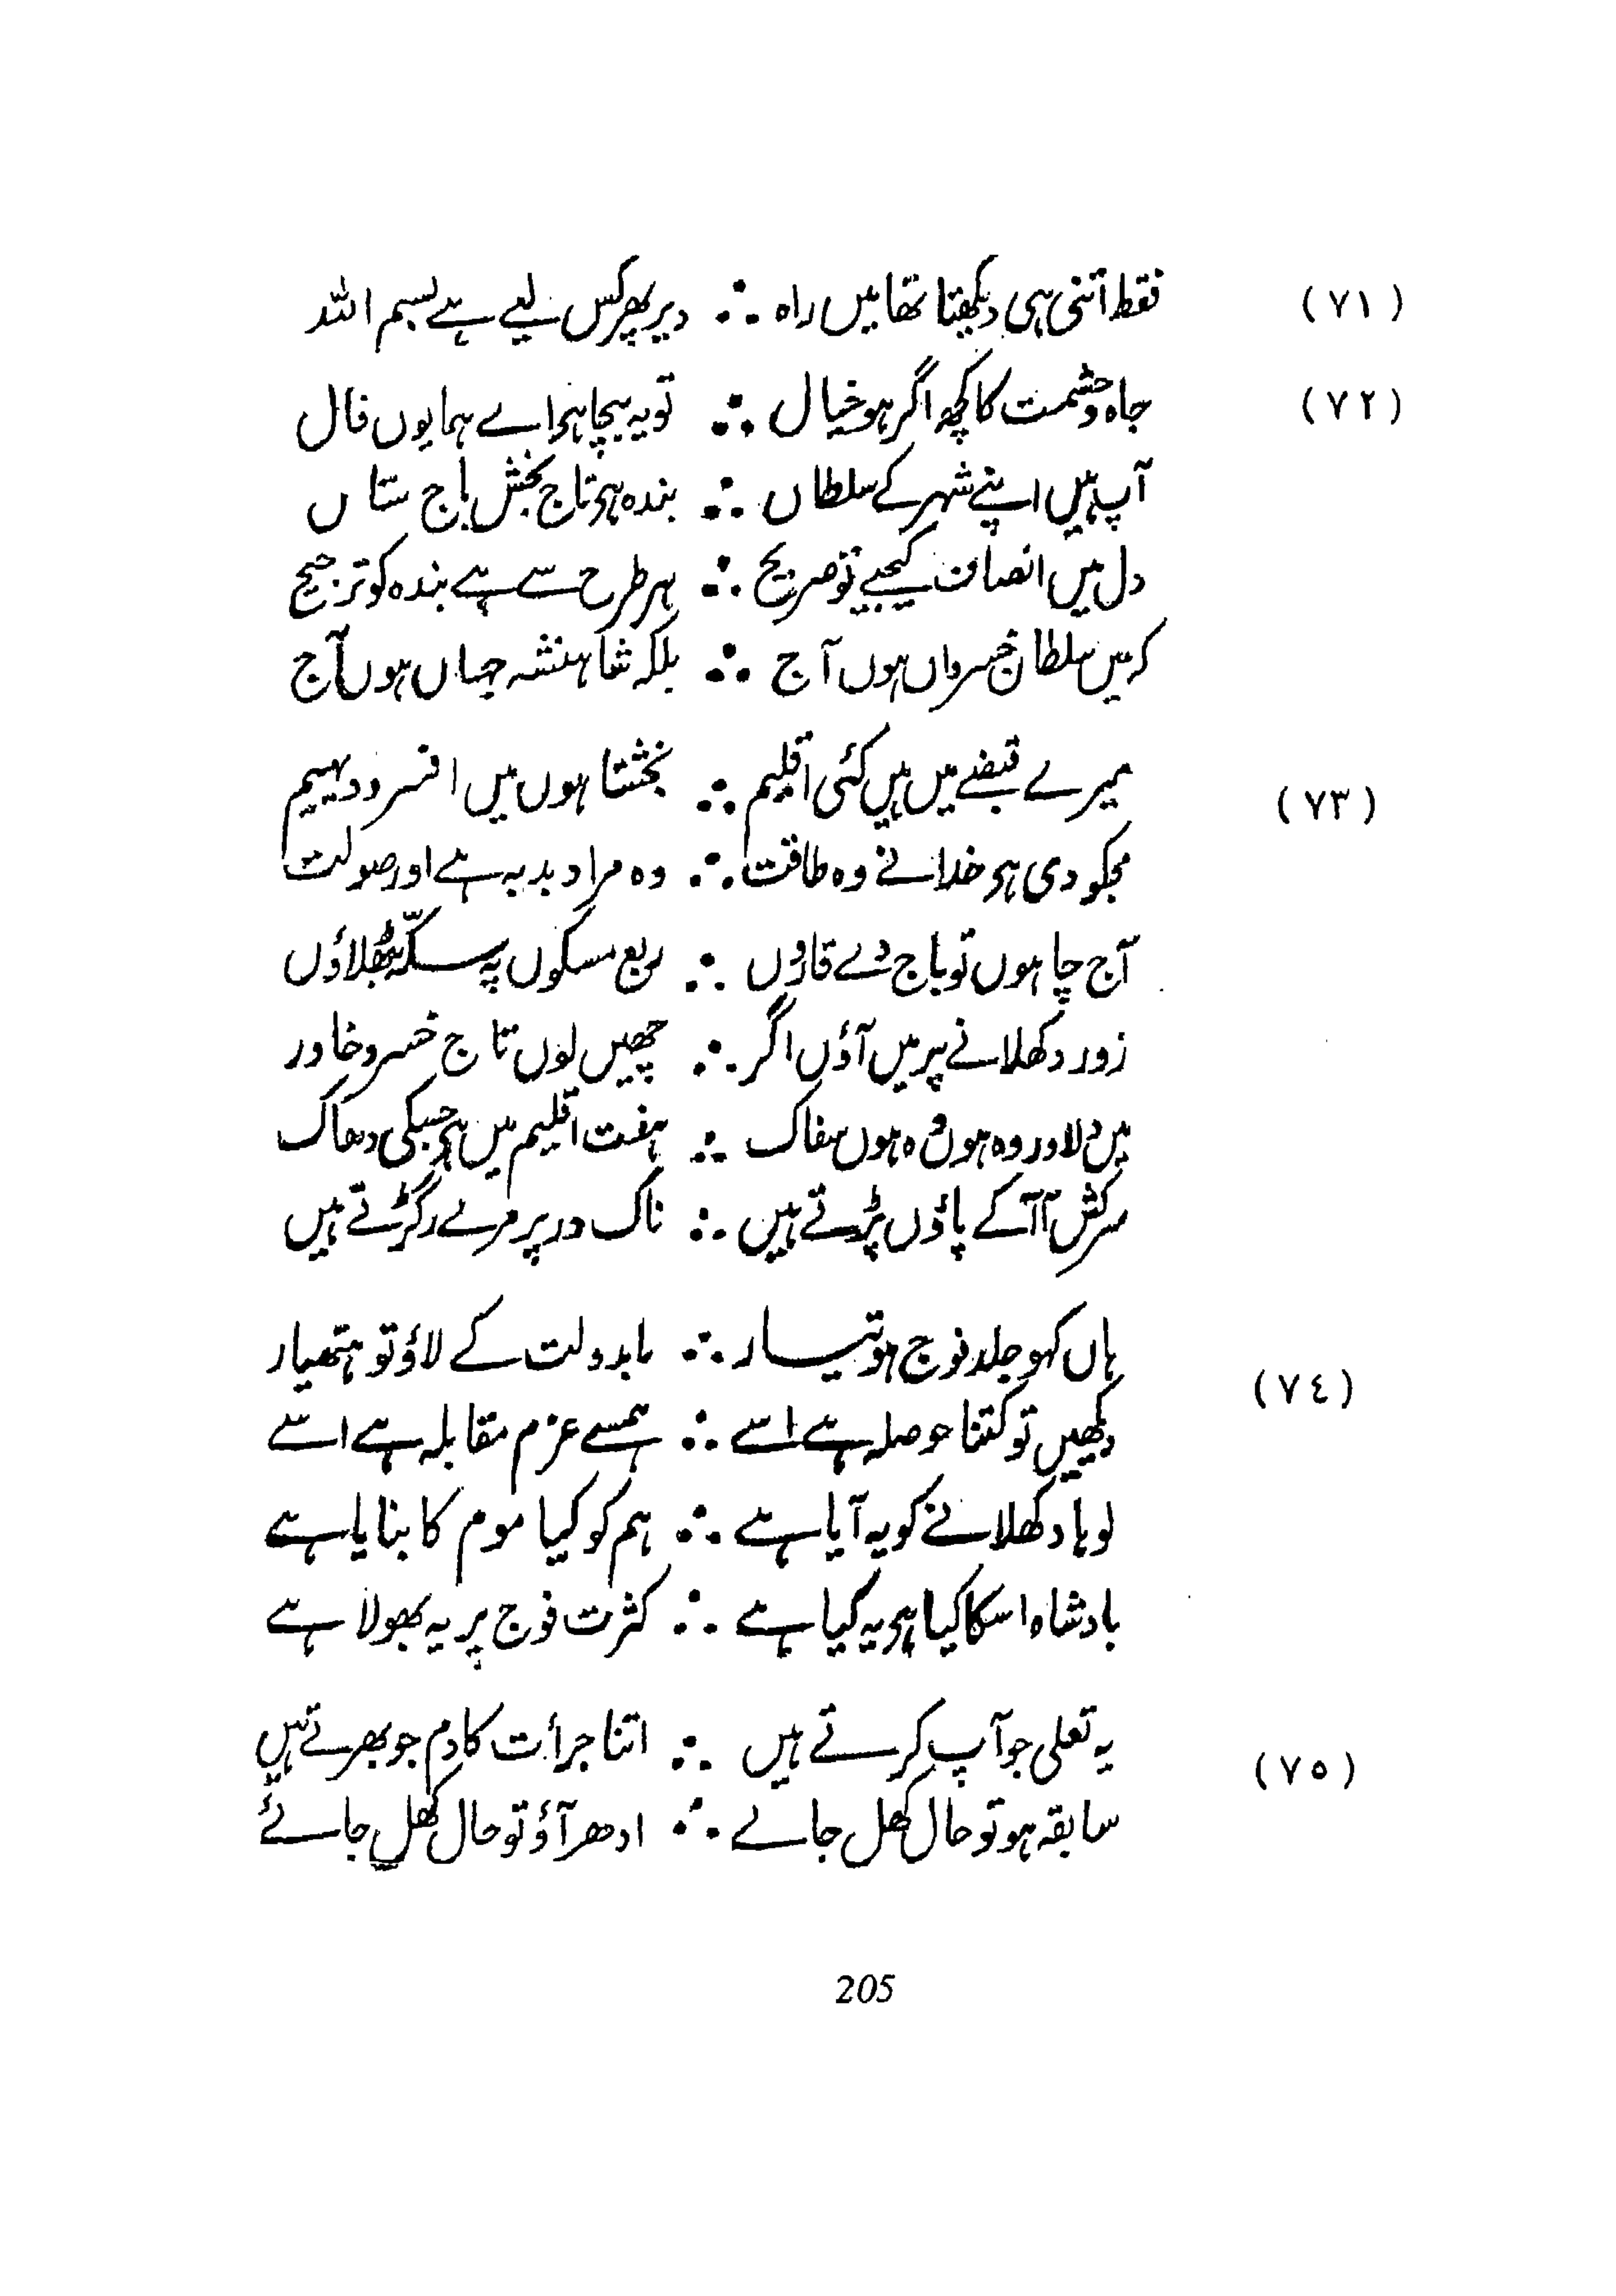 (٧١) فقط اتنی ہی دیکھتا تھا میں راہ ∴ دیر پھر کس لیے ہے بسم اللہ
(٧٢) جاہ و حشمت کا کچھ اگر ہو خیال ∴ تو یہ بیجا ہی اے ہمایوں فال
آپ ہیں اپنے شہر کے سلطاں ∴ بندہ ہی تاج بخش باج ستاں
دل میں انصاف کیجیے تو صریح ∴ ہر طرح سے ہے بندہ کو ترجیح
کہ میں سلطان خسرواں ہوں آج ∴ بلکہ شاہنشہ جہاں ہوں آج
(٧٣) میرے قبضے میں ہیں کئی اقلیم ∴ بخشتا ہوں میں افسر و دیہیم
مجکو دی ہی خدا نے وہ طاقت ∴ وہ مرا دبدبہ ہے اور صولت
آج چاہوں تو باج دے قاروں ∴ ربع مسکوں پہ سکّہ بٹھلاؤں
زور دکھلانے پر میں آؤں اگر ∴ چھین لوں تاج خسرو خاور
میں دلاور وہ ہوں وہ ہوں سفاک ∴ ہفت اقلیم میں ہی جسکی دھاک
سرکش آ آ کے پاؤں پڑتے ہیں ∴ ناک در پر مرے رگڑتے ہیں
(٧٤) ہاں کہو جلد فوج ہو تیار ∴ مابدولت کے لاؤ تو ہتھیار
دیکھیں تو کتنا حوصلہ ہے اسے ∴ ہمسے عزم مقابلہ ہے اسے
لوہا دکھلانے کو یہ آیا ہے ∴ ہم کو کیا موم کا بنایا ہے
بادشاہ اسکا کیا ہی یہ کیا ہے ∴ کثرت فوج پر یہ بھولا ہے
(٧٥) یہ تعلی جو آپ کرتے ہیں ∴ اتنا جرأت کا دم جو بھرتے ہیں
سابقہ ہو تو حال کھل جائے ∴ ادھر آؤ تو حال کھل جائے
205